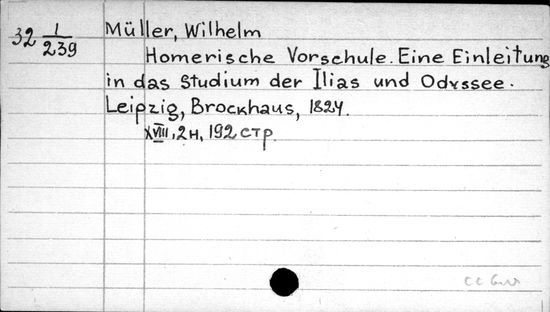 32 1/239
Müller, Wilhelm
Homerische Vorschule. Eine Einleitung
in das Studium der Ilias und Odyssee.
Leipzig, Brockhaus, 1824.
XVIII, 2 н, 192 стр.